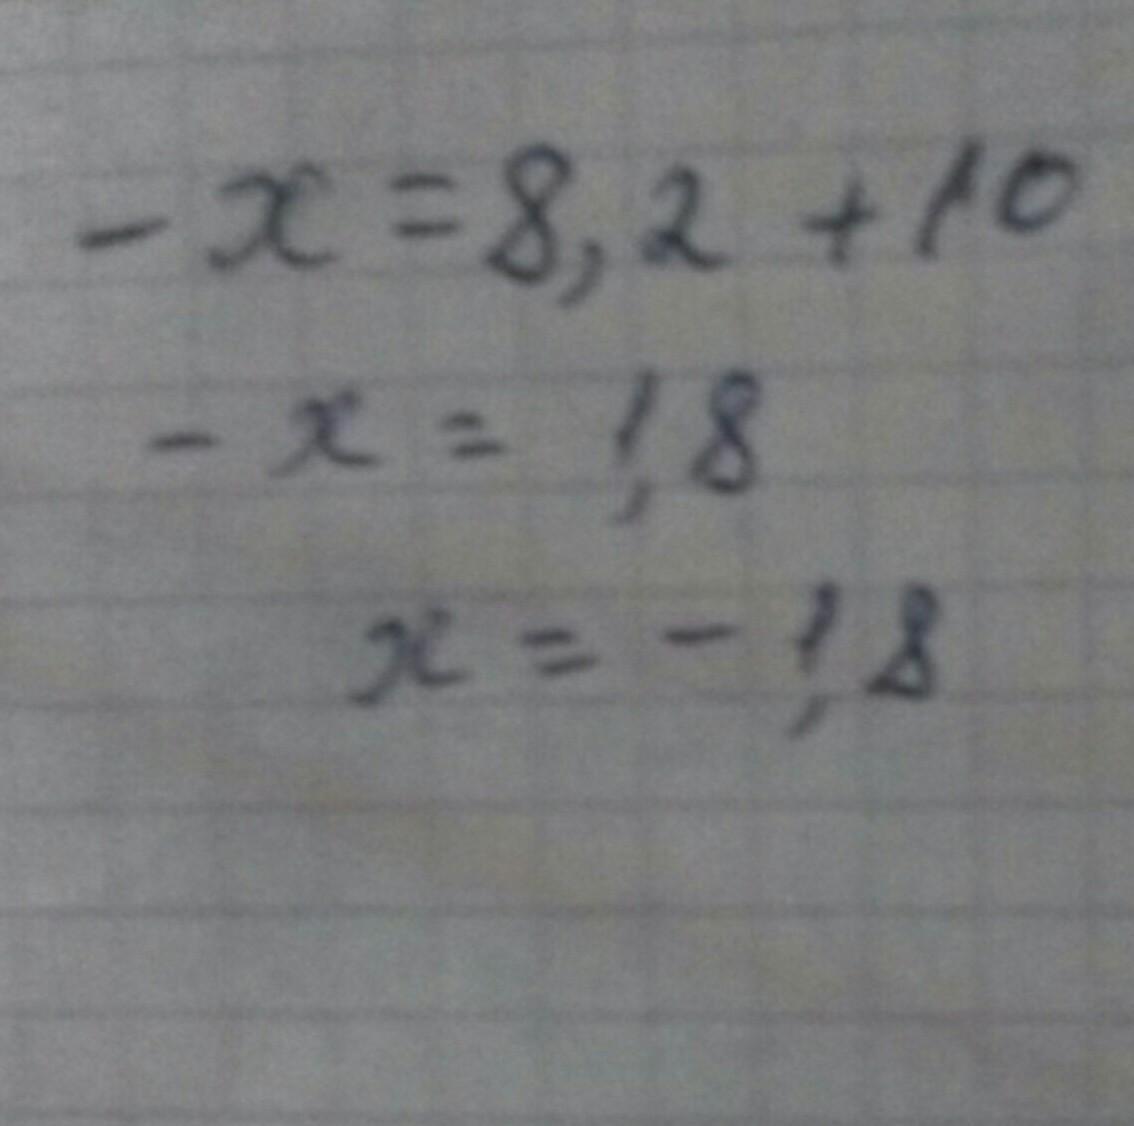 -x=8,2+10
-x=1,8
x=-1,8